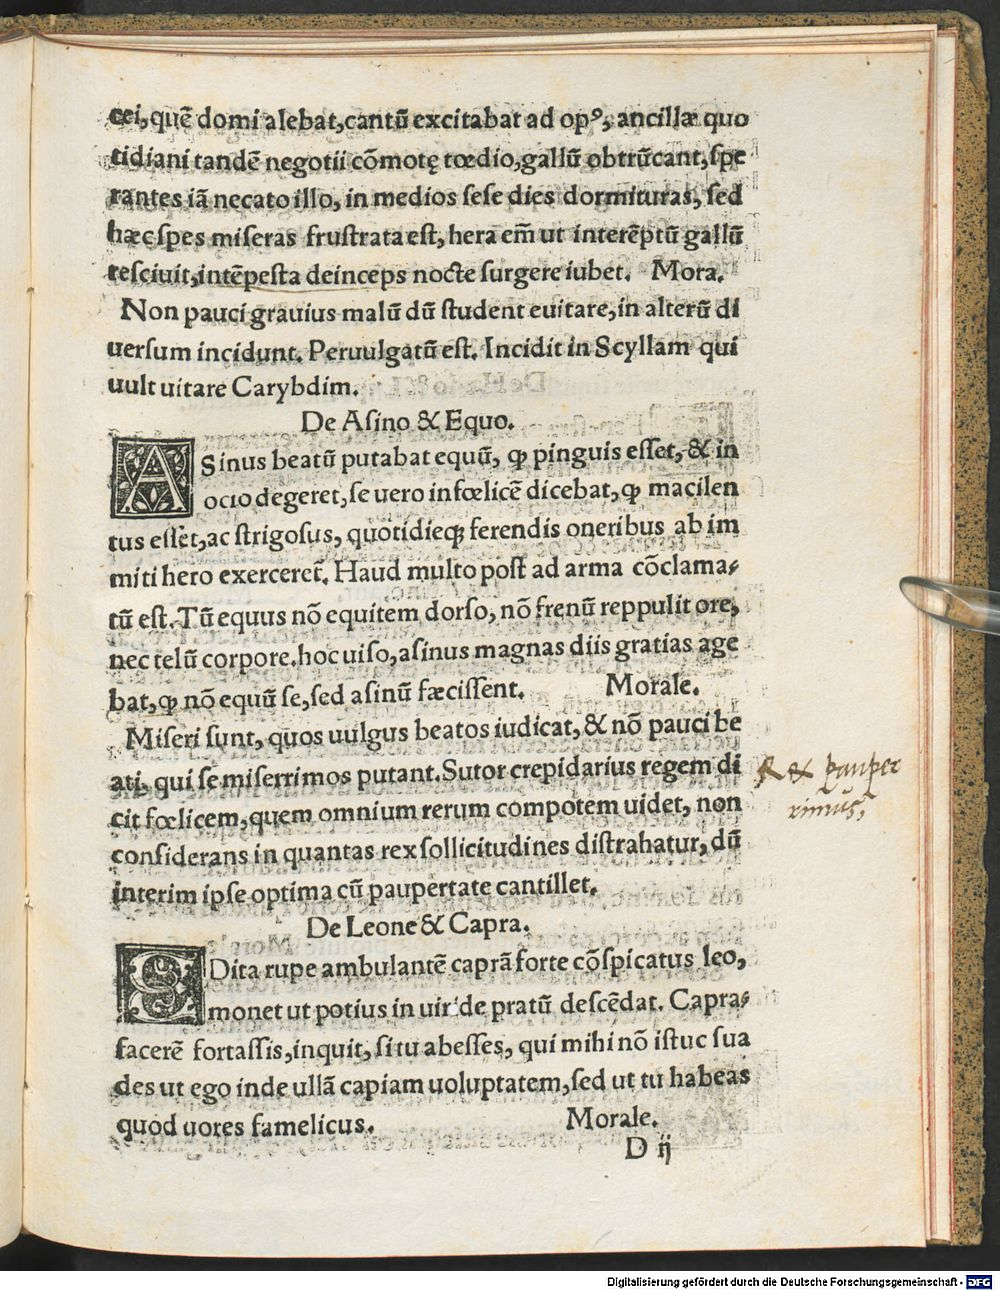 cei, quē domi alebat, cantū excitabat ad opꝰ, ancillæ quo
tidiani tandē negotii cōmotę tœdio, gallū obtrūcant, ſpe
rantes iā necato illo, in medios ſeſe dies dormituras, ſed
hæc ſpes miſeras fruſtrata eſt, hera em̄ ut interēptū gallū
reſciuit, intēpeſta deinceps nocte ſurgere iubet. Mora.
Non pauci grauius malū dū ſtudent euitare, in alterū di
uerſum incidunt. Peruulgatū eſt. Incidit in Scyllam qui
uult uitare Carybdim.
De Aſino & Equo.
ASinus beatū putabat equū, ꝙ pinguis eſſet, & in
ocio degeret, ſe uero infœlicē dicebat, ꝙ macilen
tus eſſet, ac ſtrigoſus, quotidieqꝫ ferendis oneribus ab im
miti hero exerceret̄. Haud multo poſt ad arma cōclama⸗
tū eſt. Tū equus nō equitem dorſo, nō frenū reppulit ore,
nec telū corpore. hoc uiſo, aſinus magnas diis gratias age
bat, ꝙ nō equū ſe, ſed aſinū fæciſſent. Morale.
Miſeri ſunt, quos uulgus beatos iudicat, & nō pauci be
ati, qui ſe miſerrimos putant. Sutor crepidarius regem di
cit fœlicem, quem omnium rerum compotem uidet, non
conſiderans in quantas rex ſollicitudines diſtrahatur, dū
interim ipſe optima cū paupertate cantillet.
R ex pauper
rimus,
De Leone & Capra.
SDita rupe ambulantē caprā forte cōſpicatus leo,
monet ut potius in uiride pratū deſcēdat. Capra⸗
facerē fortaſſis, inquit, ſi tu abeſſes, qui mihi nō iſtuc ſua
des ut ego inde ullā capiam uoluptatem, ſed ut tu habeas
quod uores famelicus. Morale.
D ij
Digitalisierung gefördert durch die Deutsche Forschungsgemeinschaft - DFG